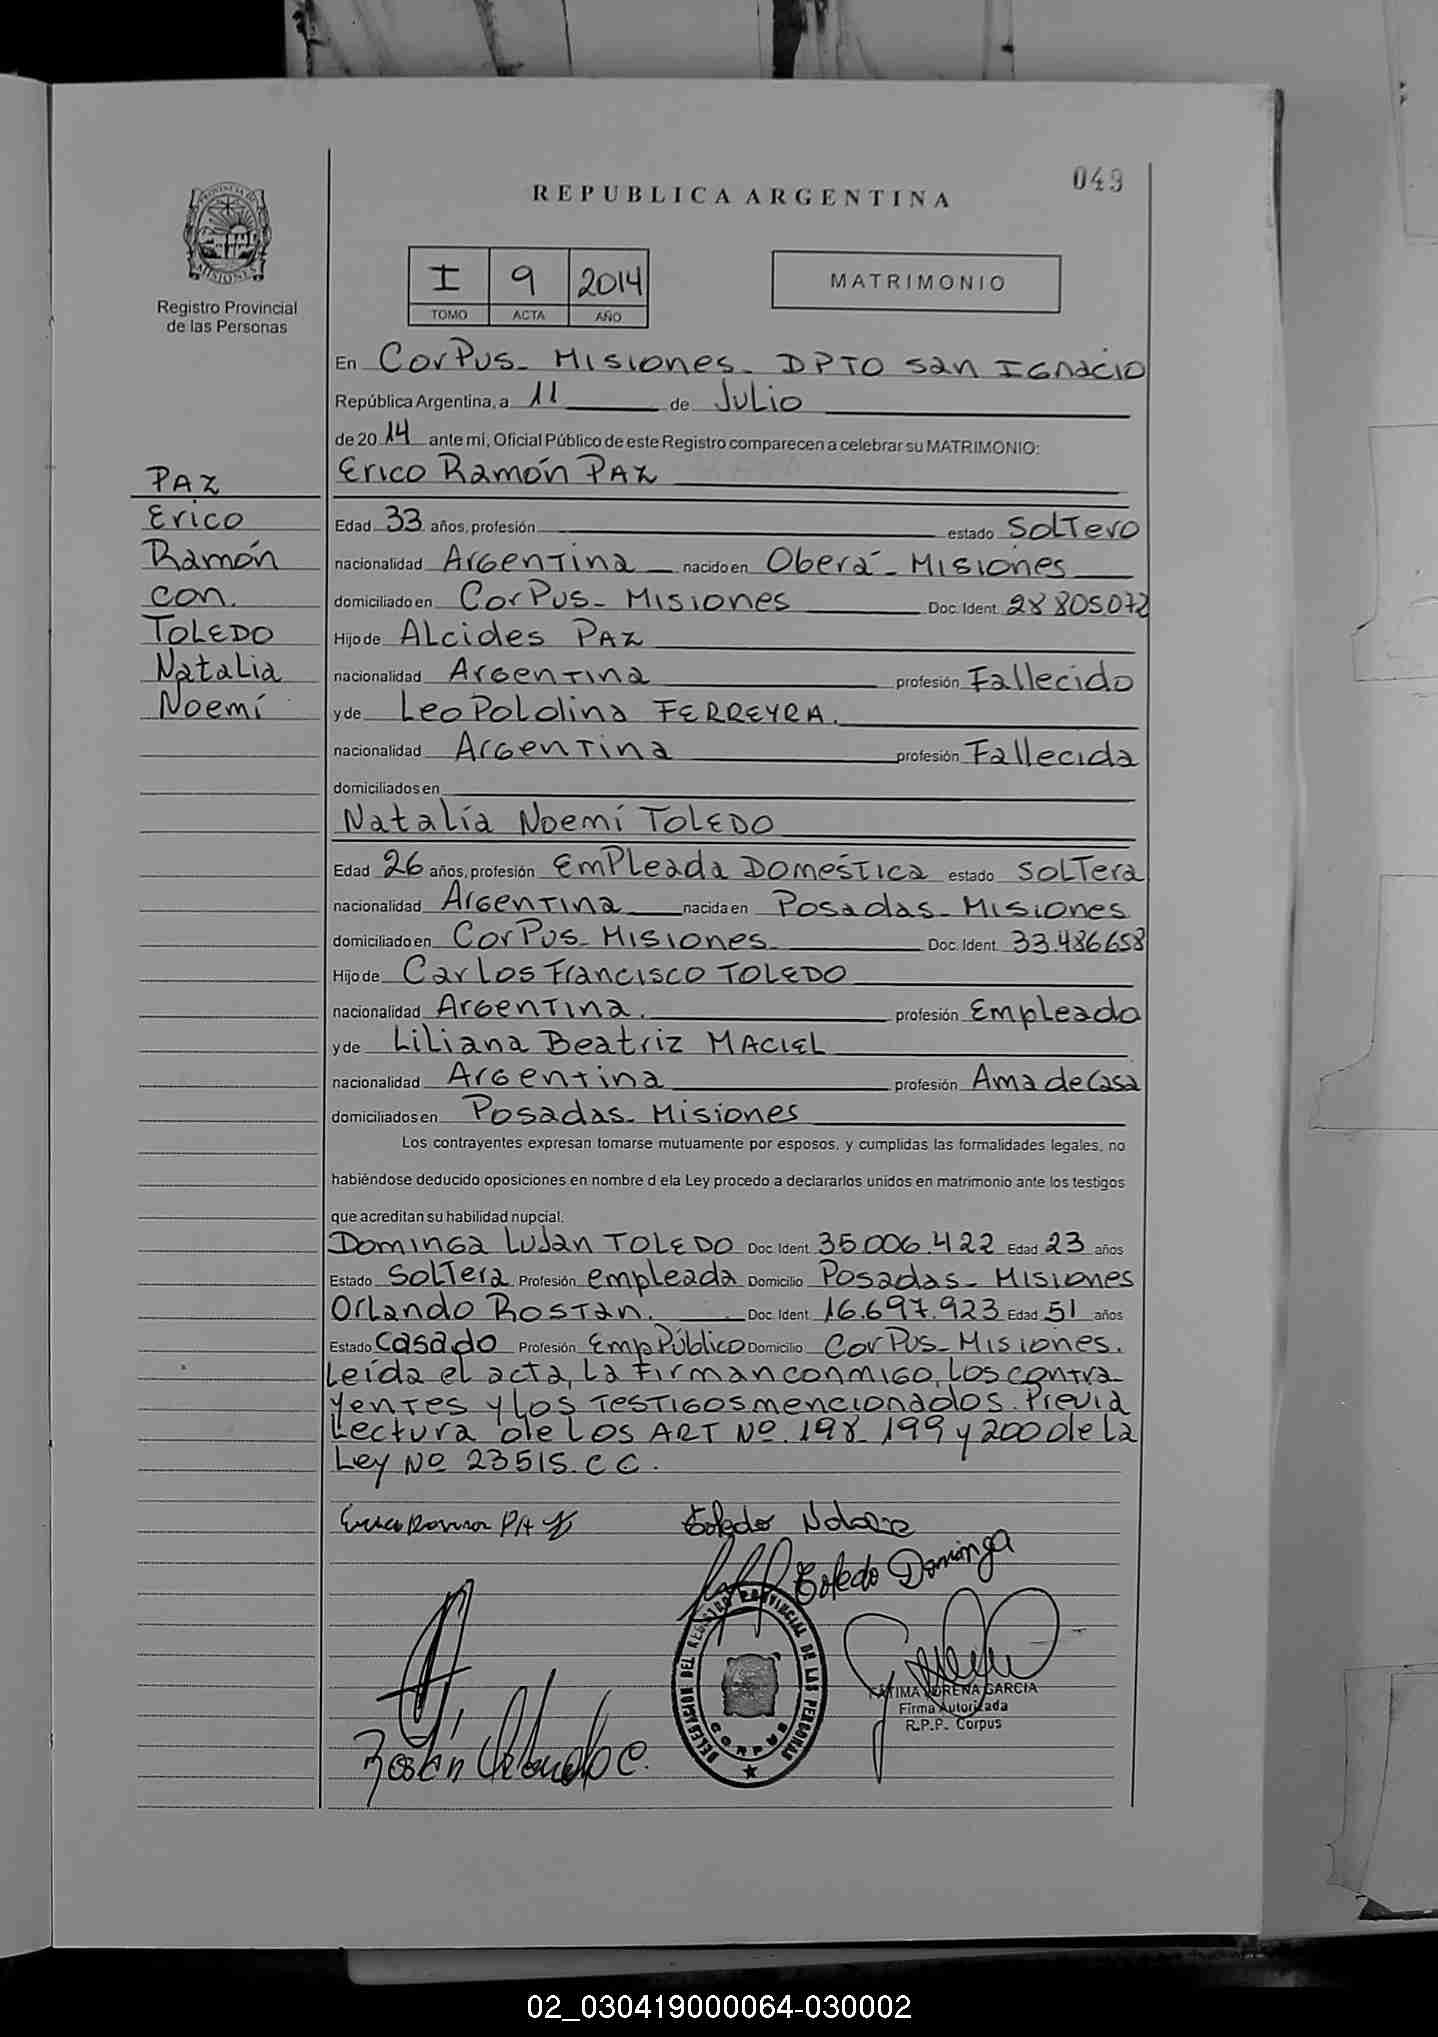 049
REPUBLICA ARGENTINA
PROVINCIA DE
MISIONES
Registro Provincial
de las Personas
I 9 2014
TOMO ACTA AÑO
MATRIMONIO
En CorPus- Misiones- DPTO San Ignacio
República Argentina, a 11 de Julio
de 2014 ante mi, Oficial Público de este Registro comparecen a celebrar su MATRIMONIO:
PAZ
Erico
Ramón
con.
TOLEDO
Natalia
Noemí
Erico Ramón PAZ
Edad 33 años, profesión estado Soltero
nacionalidad Argentina nacido en Oberá- Misiones
domiciliado en CorPus- Misiones Doc. Ident. 28805072
Hijo de Alcides PAZ
nacionalidad Argentina profesión Fallecido
y de Leopoldina FERREYRA.
nacionalidad Argentina profesión Fallecida
domiciliados en
Natalia Noemí TOLEDO
Edad 26 años, profesión EmPleada Doméstica estado Soltera
nacionalidad Argentina nacida en Posadas- Misiones
domiciliado en CorPus- Misiones Doc. Ident. 33.486658
Hijo de Carlos Francisco TOLEDO
nacionalidad Argentina. profesión Empleado
y de Liliana Beatriz MACIEL
nacionalidad Argentina profesión Ama de Casa
domiciliados en Posadas- Misiones
Los contrayentes expresan tomarse mutuamente por esposos, y cumplidas las formalidades legales, no
habiéndose deducido oposiciones en nombre d ela Ley procedo a declararlos unidos en matrimonio ante los testigos
que acreditan su habilidad nupcial.
Dominga Lujan TOLEDO Doc. Ident. 35.006.422 Edad 23 años
Estado Soltera Profesión empleada Domicilio Posadas- Misiones
Orlando Rostan. Doc. Ident. 16.697.923 Edad 51 años
Estado Casado Profesión Emp Público Domicilio CorPus- Misiones.
Leída el acta, la firman conmigo, los contra
yentes y los testigos mencionados. Previa
Lectura de los ART Nº 198 199 y 200 de la
Ley Nº 23515. C C.
Erico Ramon PAZ
Toledo Natalia
Toledo Dominga
DELEGACION DEL REGISTRO PROVINCIAL DE LAS PERSONAS
CORPUS
FATIMA LORENA GARCIA
Firma Autorizada
R.P.P. Corpus
Rostán Orlando C.
02_030419000064-030002